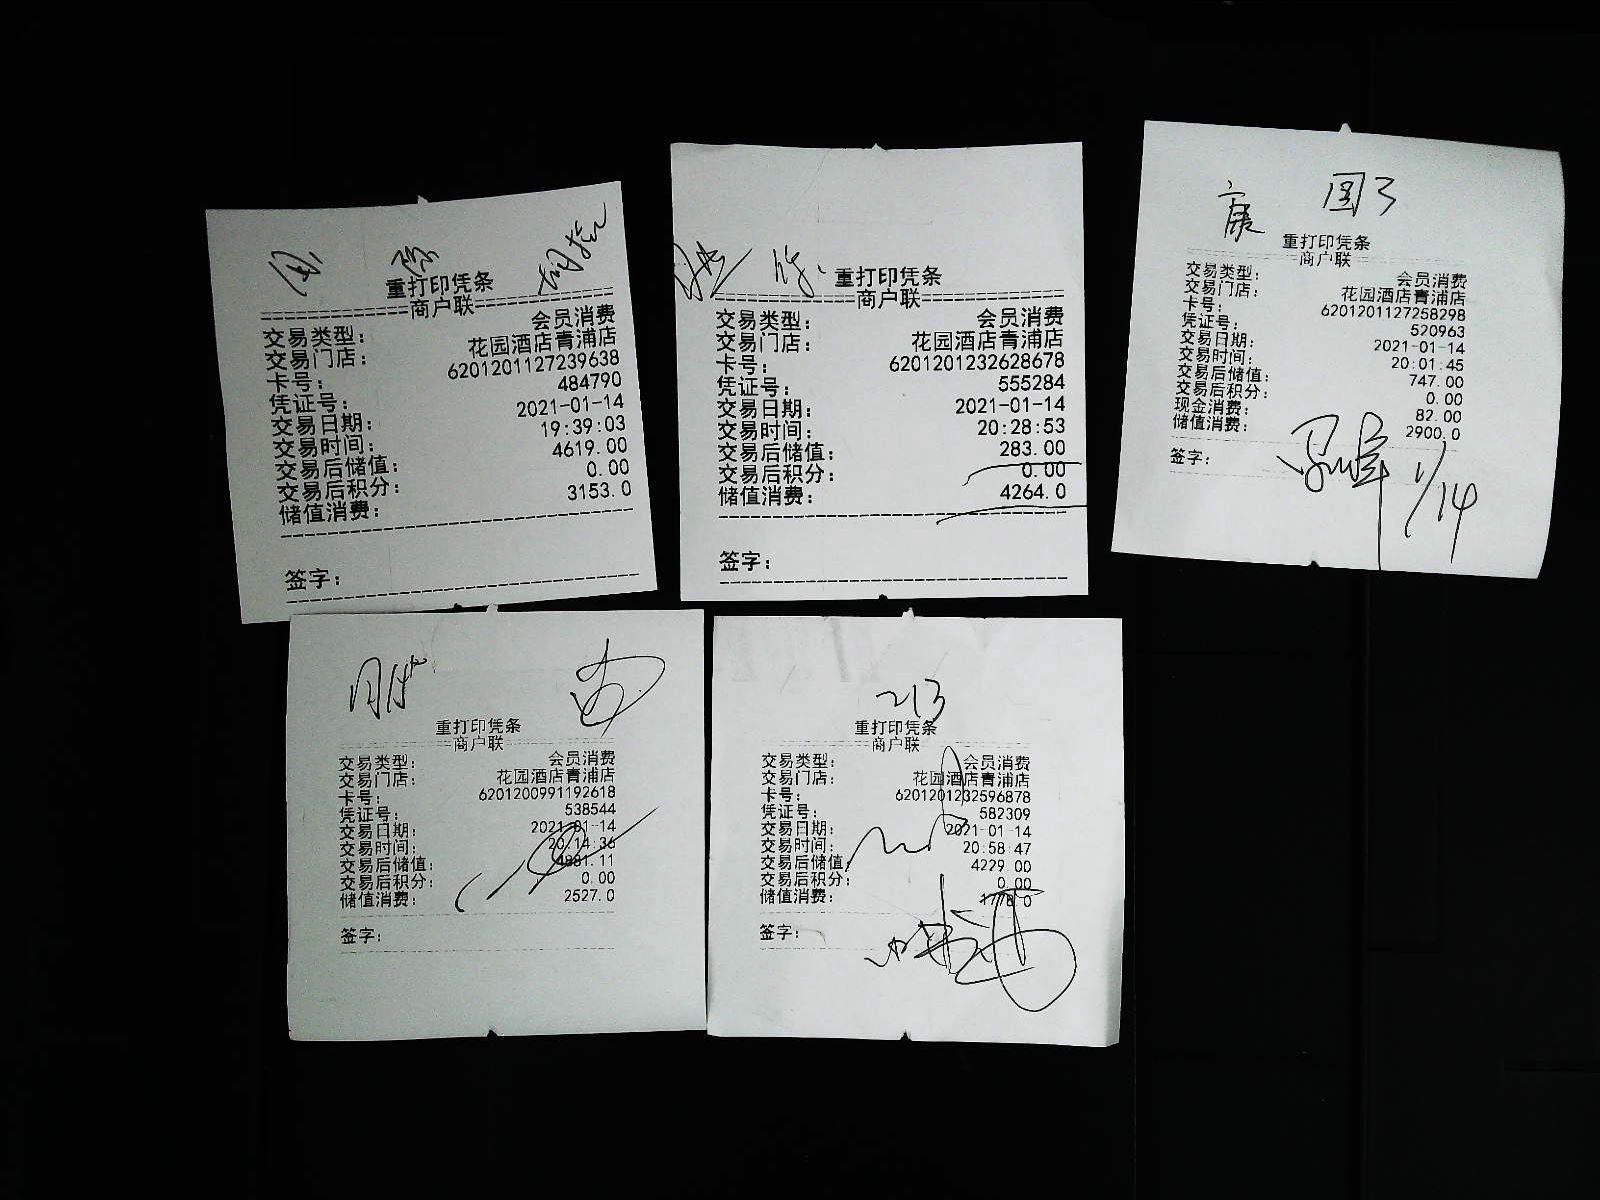 重打印凭条
商户联
交易类型： 会员消费
交易门店： 花园酒店青浦店
卡号： 6201201127239638
凭证号： 484790
交易日期： 2021-01-14
交易时间： 19:39:03
交易后储值： 4619.00
交易后积分： 0.00
储值消费： 3153.0
签字：
重打印凭条
商户联
交易类型： 会员消费
交易门店： 花园酒店青浦店
卡号： 6201201232628678
凭证号： 555284
交易日期： 2021-01-14
交易时间： 20:28:53
交易后储值： 283.00
交易后积分： 0.00
储值消费： 4264.0
签字：
康 国3
重打印凭条
商户联
交易类型： 会员消费
交易门店： 花园酒店青浦店
卡号： 6201201127258298
凭证号： 520963
交易日期： 2021-01-14
交易时间： 20:01:45
交易后储值： 747.00
交易后积分： 0.00
现金消费： 82.00
储值消费： 2900.0
签字： 1/14
重打印凭条
商户联
交易类型： 会员消费
交易门店： 花园酒店青浦店
卡号： 6201200991192618
凭证号： 538544
交易日期： 2021-01-14
交易时间： 20:14:36
交易后储值： 4881.11
交易后积分： 0.00
储值消费： 2527.0
签字：
213
重打印凭条
商户联
交易类型： 会员消费
交易门店： 花园酒店青浦店
卡号： 6201201232596878
凭证号： 582309
交易日期： 2021-01-14
交易时间： 20:58:47
交易后储值： 4229.00
交易后积分： 0.00
储值消费： 1778.0
签字：